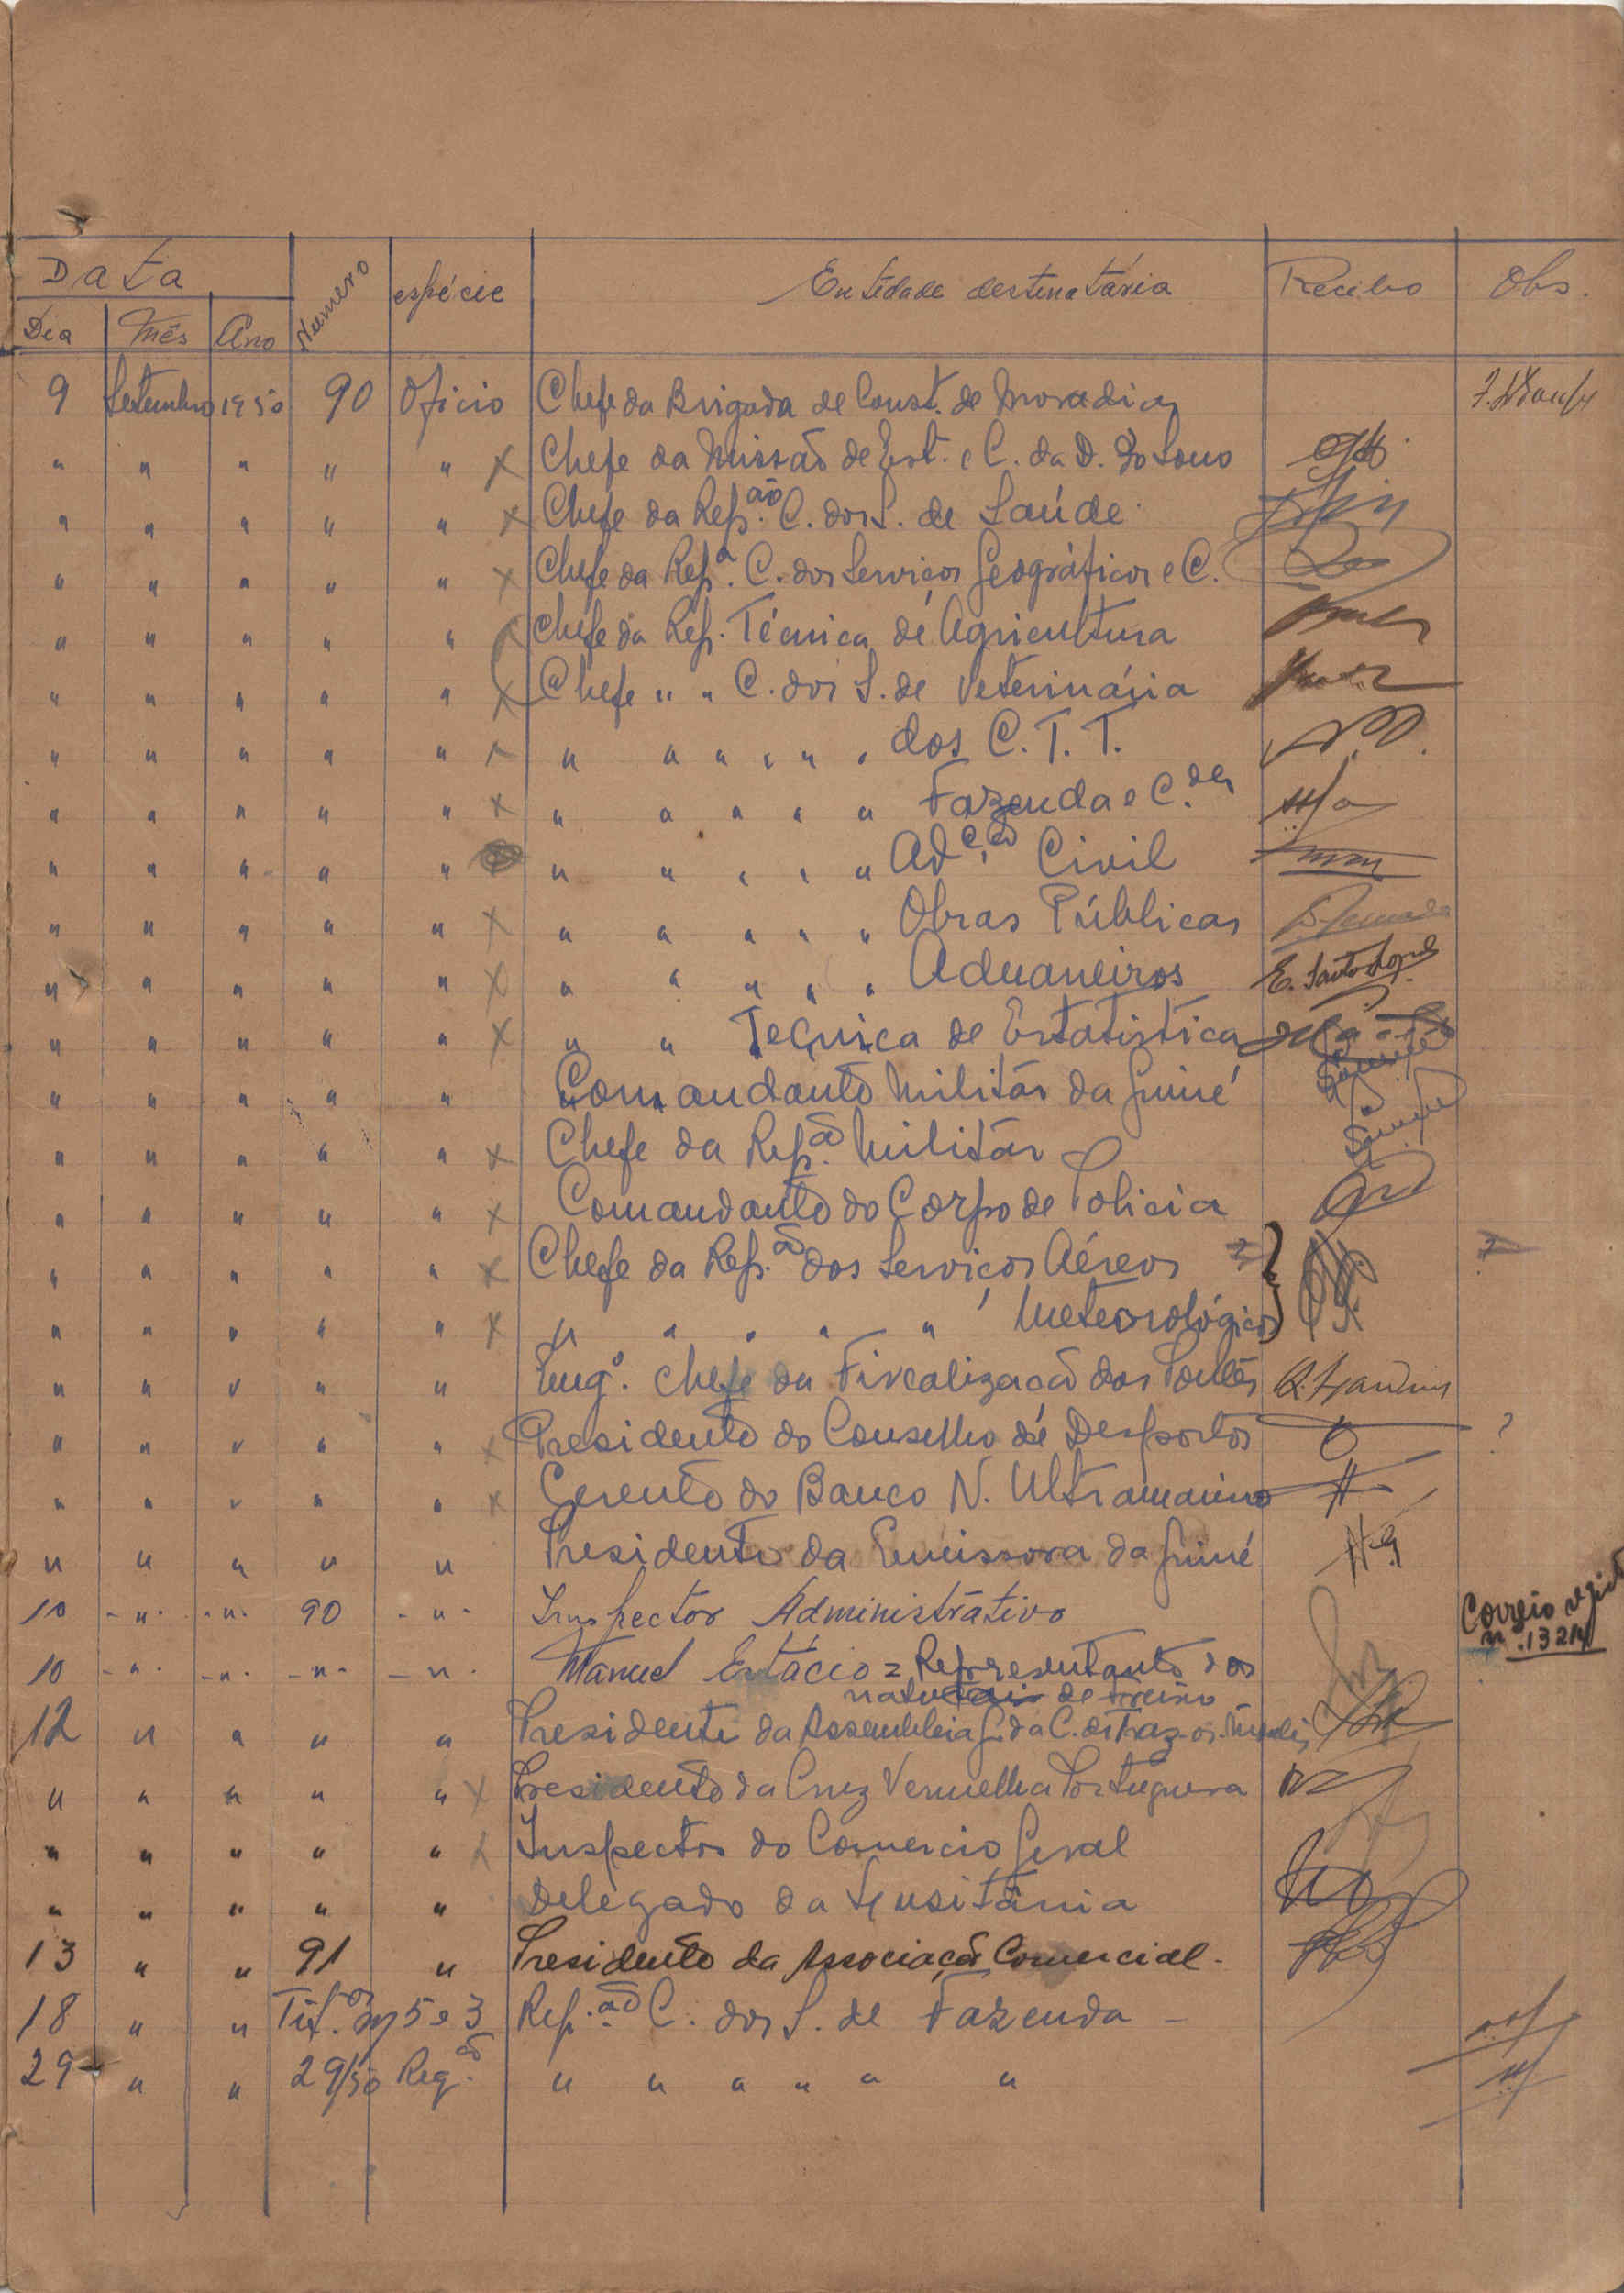 Data Numero espécie Entidade destinatária Recibo Obs.
Dia Mês Ano
9 Setembro 1950 90 Oficio Chefe da Brigada de Const. de Moradias
" " " " " x Chefe da Missão de Est. e C. da D. do Sono
" " " " " x Chefe da Rep.ão C. dos S. de Saúde
" " " " " x Chefe da Rep.ª C. dos Serviços Geográficos e C.
" " " " " x Chefe da Rep. Técnica de Agricultura
" " " " " x Chefe " " C. dos S. de Veterinária
" " " " " x " " " " " " dos C. T. T.
" " " " " x " " " " " Fazenda e C.des
" " " " " " " " " " Ad.ção Civil
" " " " " x " " " " " Obras Públicas
" " " " " x " " " " " Aduaneiros E. Santos Lopes
" " " " " x " " Técnica de Estatistica
" " " " " Comandante Militar da Guiné
" " " " " x Chefe da Rep.ão Militar
" " " " " x Comandante do Corpo de Policia
" " " " " x Chefe da Rep.ão dos Serviços Aéreos ? ?
" " " " " x " " " " " Meteorológicos
" " " " " Eng.º Chefe da Fiscalização das Pontes
" " " " " x Presidente do Conselho de Desportos ?
" " " " " x Gerente do Banco N. Ultramarino
" " " " " Presidente da Emissora da Guiné
10 - " - - " - 90 - " - Inspector Administrativo Correio n. 1321
10 - " - - " - - " - - " - Manuel Estácio = Representante dos
naturais de
12 " " " " Presidente da Assembleia G. da C. de Traz-os-Montes
" " " " " x Presidente da Cruz Vermelha Portuguesa
" " " " " x Inspector do Comercio Geral
" " " " " Delegado da Lusitânia
13 " " 91 " Presidente da Associação Comercial.
18 " " Tít.os 5 e 3 Rep.ão C. dos S. de Fazenda -
29 " " 29/50 Reg.ão " " " " " "